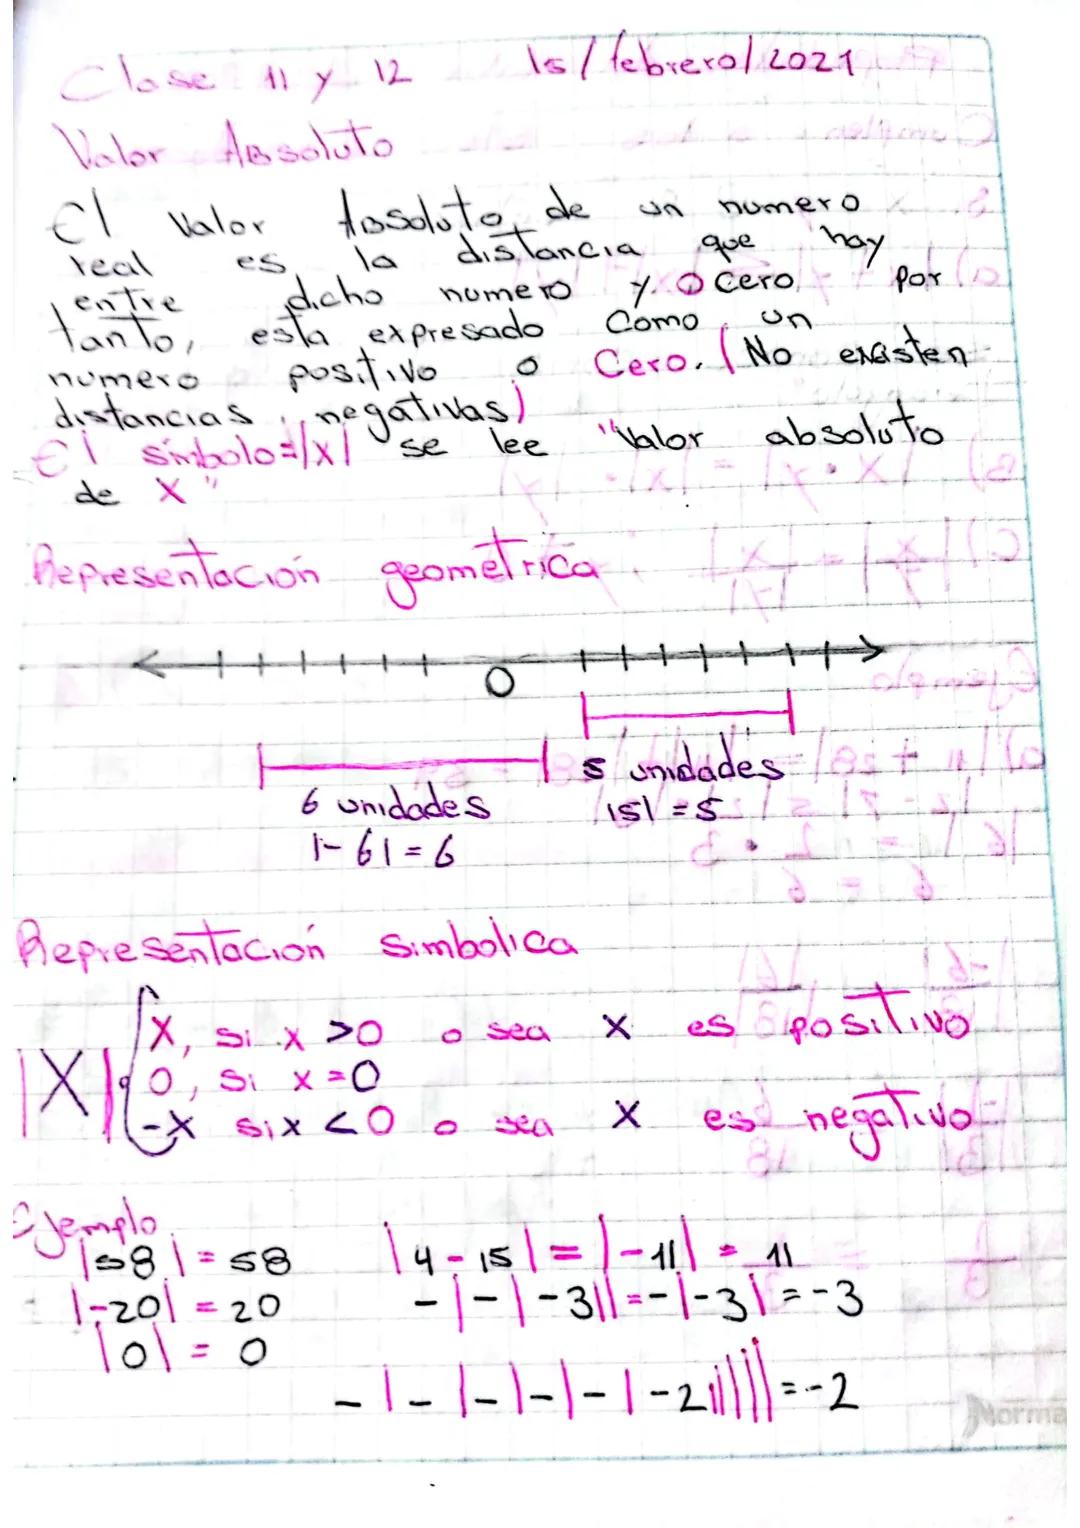 Clase 11 y 12 15/febrero/2021
Valor Absoluto
El valor Absoluto, de un numero
real es, la distancia que hay
entre dicho numero y 0 cero, por
tanto, esta expresado como un
numero positivo o Cero. (No existen
distancias negativas)
El símbolo=|x| se lee "Valor absoluto
de X"
Representación geometrica
0
5 unidades
6 unidades |5| = 5
|-6| = 6
Representación simbolica
X, si x >0 o sea x es positivo
|X| 0, si x=0
-x si x <0 o sea x es negativo
Ejemplo
|58| = 58 |4-15| = |-11| = 11
|-20| = 20 -|-|-3||=-|-3|=-3
|0| = 0
-|-|-|-|-|-2|||||=-2
Norma